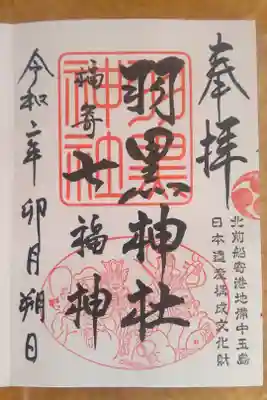 奉拝
北前船寄港地備中玉島
日本遺産構成文化財
羽黒神社
羽黒
神社
福寄
七福神
令和二年 卯月 朔日